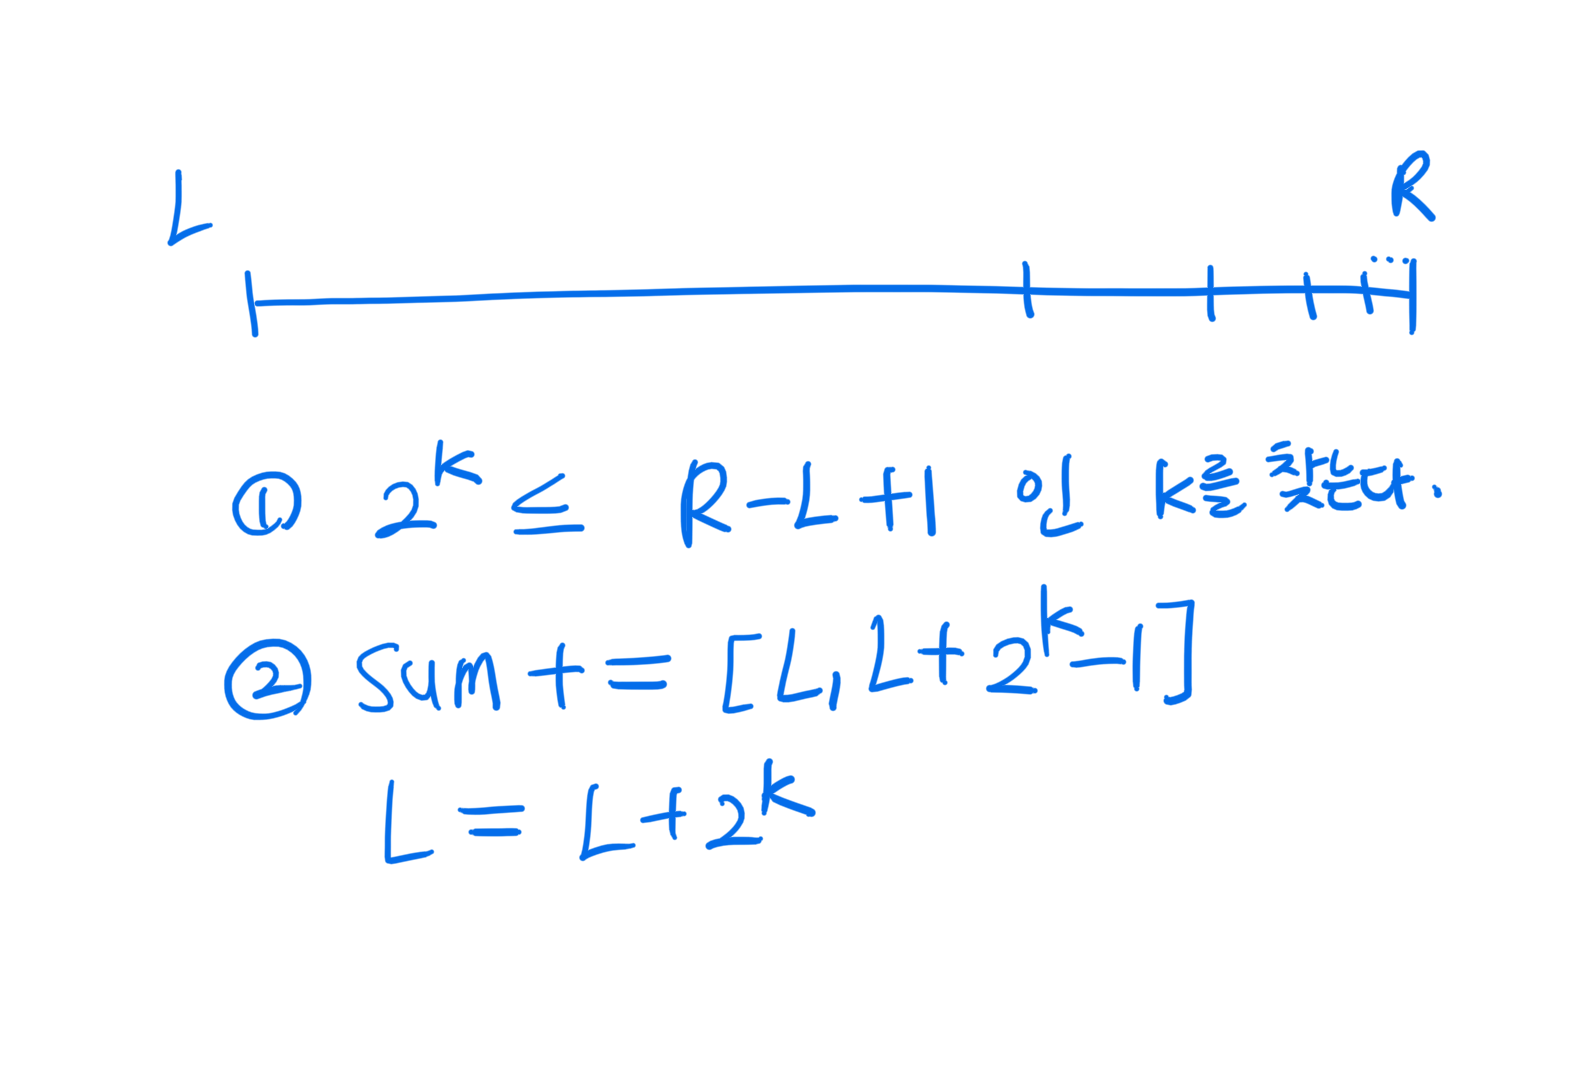 L R
...
① 2^k ≤ R-L+1 인 k를 찾는다.
② sum += [L, L+2^k-1]
L = L+2^k